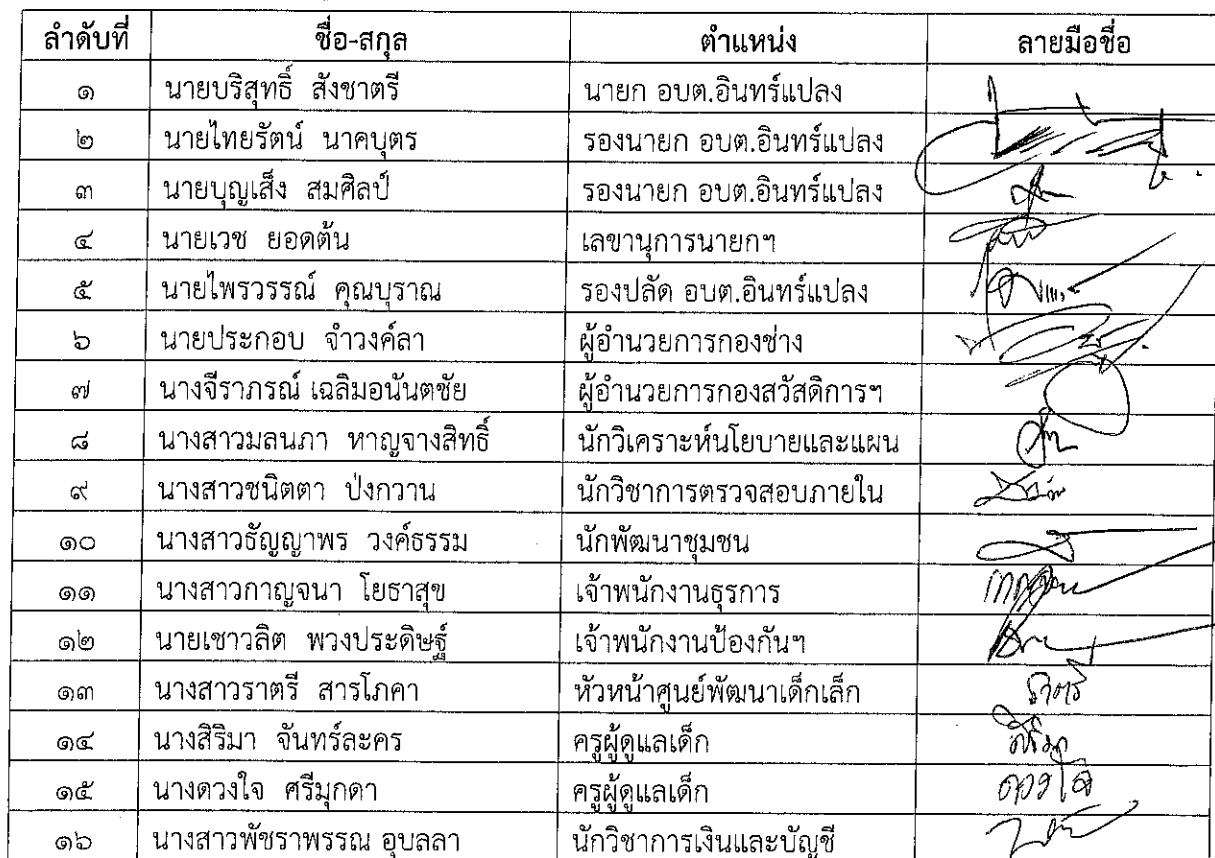 ลำดับที่ ชื่อ-สกุล ตำแหน่ง ลายมือชื่อ
๑ นายบริสุทธิ์ สังชาตรี นายก อบต.อินทร์แปลง
๒ นายไทยรัตน์ นาคบุตร รองนายก อบต.อินทร์แปลง
๓ นายบุญเส็ง สมศิลป์ รองนายก อบต.อินทร์แปลง
๔ นายเวช ยอดต้น เลขานุการนายกฯ
๕ นายไพรวรรณ์ คุณบุราณ รองปลัด อบต.อินทร์แปลง
๖ นายประกอบ จำวงค์ลา ผู้อำนวยการกองช่าง
๗ นางจีราภรณ์ เฉลิมอนันตชัย ผู้อำนวยการกองสวัสดิการฯ
๘ นางสาวมลนภา หาญจางสิทธิ์ นักวิเคราะห์นโยบายและแผน
๙ นางสาวชนิตตา ป่งกวาน นักวิชาการตรวจสอบภายใน
๑๐ นางสาวธัญญาพร วงค์ธรรม นักพัฒนาชุมชน
๑๑ นางสาวกาญจนา โยธาสุข เจ้าพนักงานธุรการ
๑๒ นายเชาวลิต พวงประดิษฐ์ เจ้าพนักงานป้องกันฯ
๑๓ นางสาวราตรี สารโภคา หัวหน้าศูนย์พัฒนาเด็กเล็ก ราตรี
๑๔ นางสิริมา จันทร์ละคร ครูผู้ดูแลเด็ก สิริมา
๑๕ นางดวงใจ ศรีมุกดา ครูผู้ดูแลเด็ก ดวงใจ
๑๖ นางสาวพัชราพรรณ อุบลลา นักวิชาการเงินและบัญชี